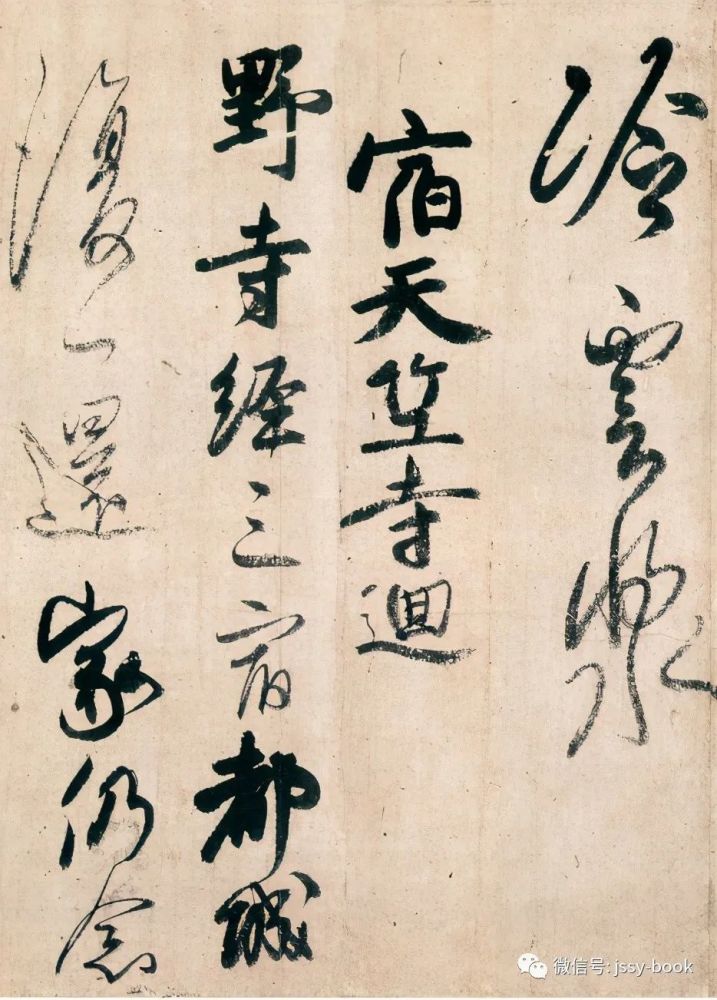 冷雲
宿天竺寺迴
野寺經三宿都城
復一還家仍念
微信号: jssy-book